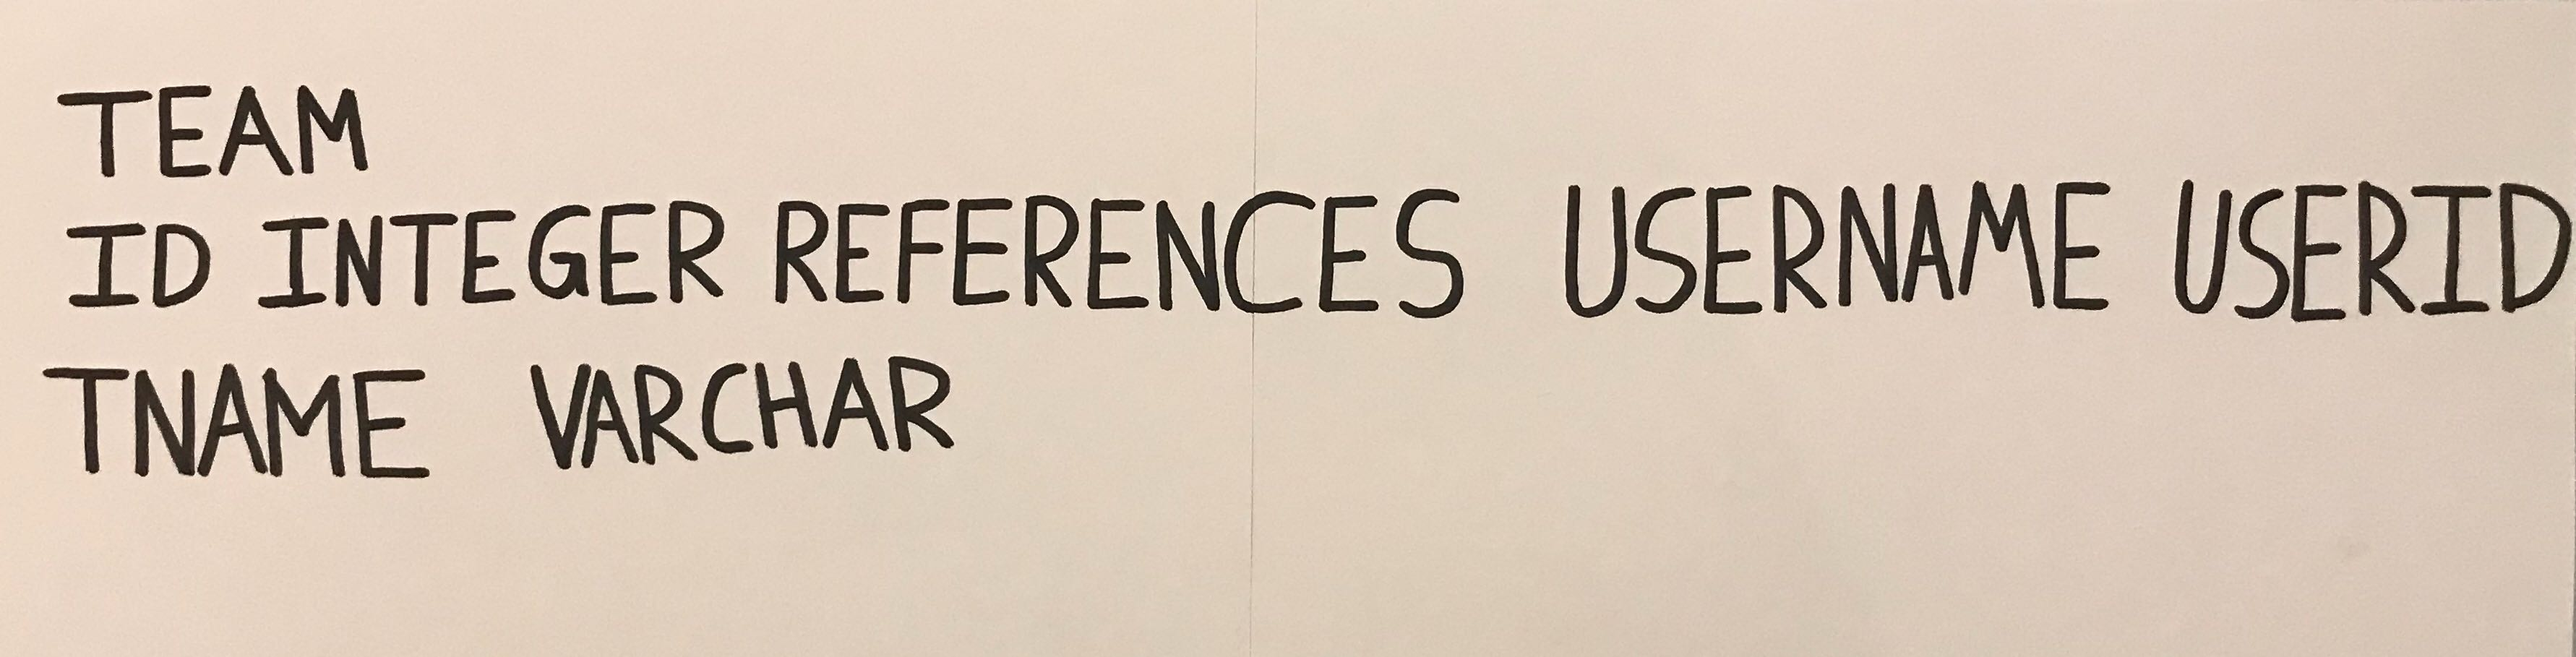 TEAM
ID INTEGER REFERENCES USERNAME USERID
TNAME VARCHAR